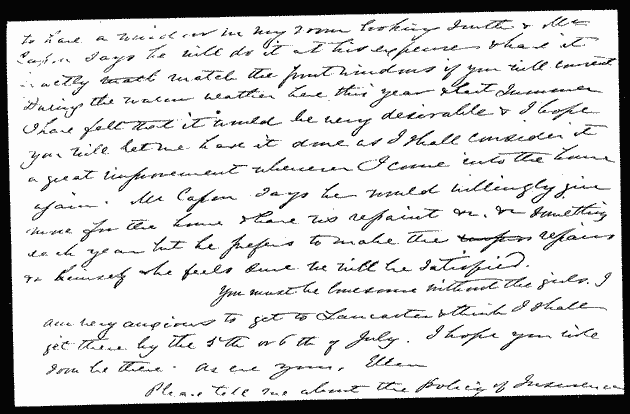 to have a window in my room looking South & Mr
Capon says he will do it at his expense & have it
exactly match the front windows if you will consent
During the warm weather here this year & last Summer
I have felt that it would be very desirable & I hope
you will let me have it done as I shall consider it
a great improvement whenever I come into the house
again. Mr Capon says he would willingly give
more for the house & have us repaint &c. &c something
each year but he prefers to make the repairs
&c himself & he feels sure we will be satisfied.
You must be lonesome without the girls. I
am very anxious to get to Lancaster & think I shall
get there by the 5th or 6th of July. I hope you will
soon be there. As ever yours, Ellen
Please tell me about the Policy of Insurance